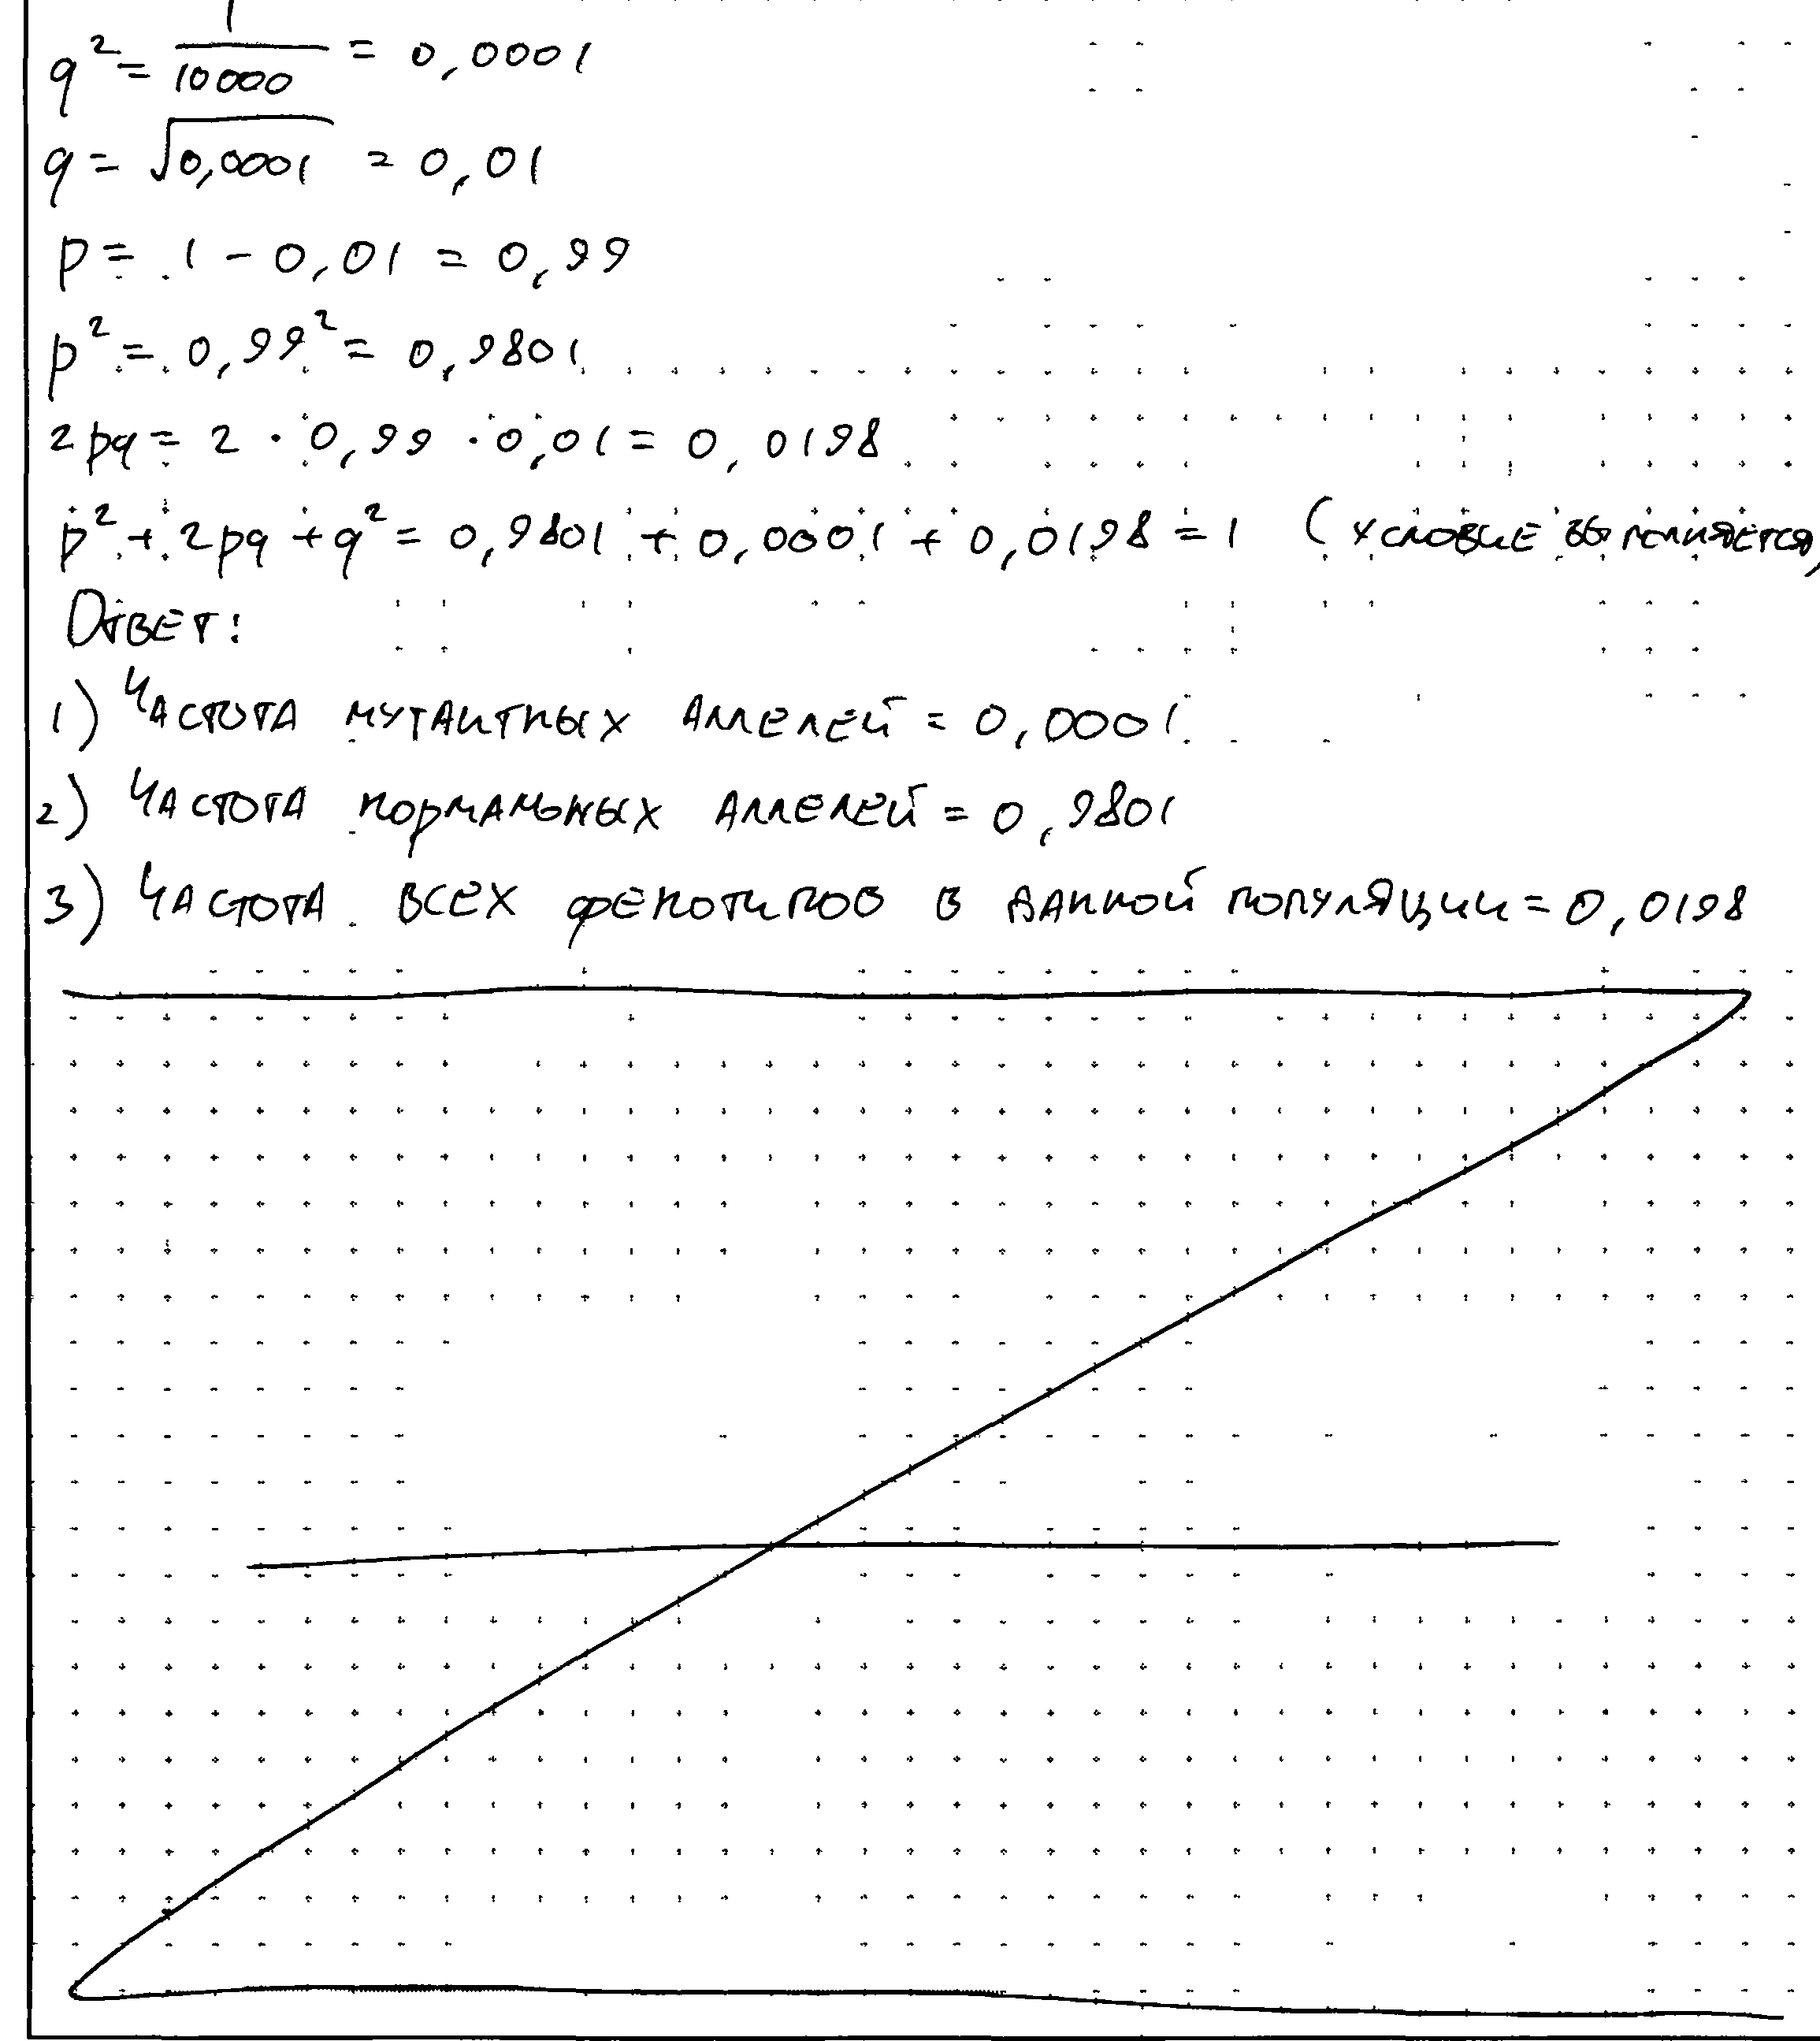 q² = 1/10000 = 0,0001
q = √0,0001 = 0,01
p = 1 - 0,01 = 0,99
p² = 0,99² = 0,9801
2pq = 2 · 0,99 · 0,01 = 0,0198
p² + 2pq + q² = 0,9801 + 0,0001 + 0,0198 = 1 (условие выполняется)
Ответ:
1) Частота мутантных аллелей = 0,0001
2) Частота нормальных аллелей = 0,9801
3) Частота всех фенотипов в данной популяции = 0,0198